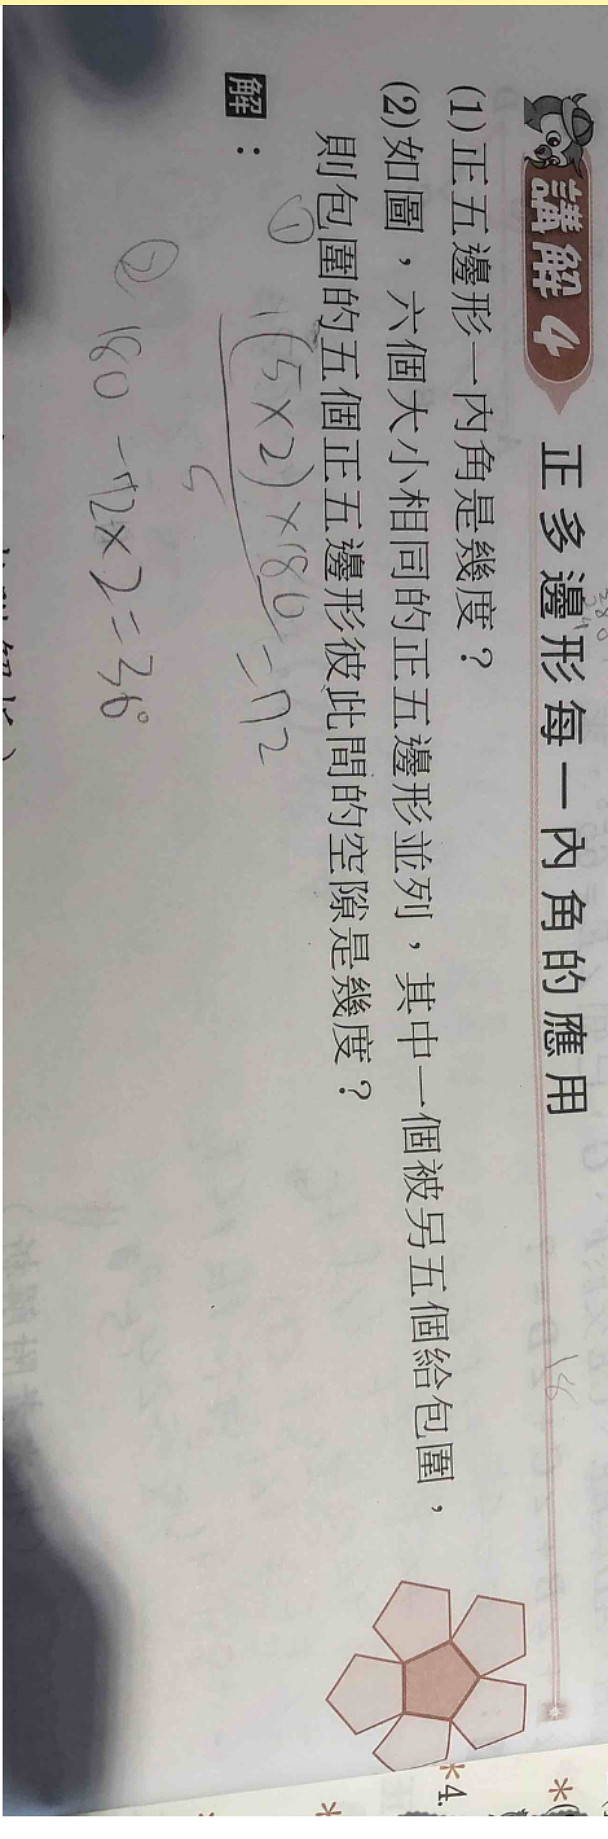 講解4 正多邊形每一內角的應用
(1)正五邊形一內角是幾度？
(2)如圖，六個大小相同的正五邊形並列，其中一個被另五個給包圍，
則包圍的五個正五邊形彼此間的空隙是幾度？
解：
① (5×2)×180
5
=72
② 180-72×2=36°
*4.